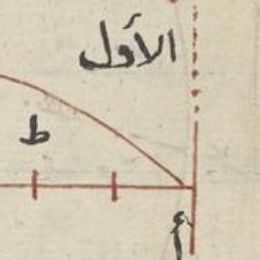 الأول
ط
أ